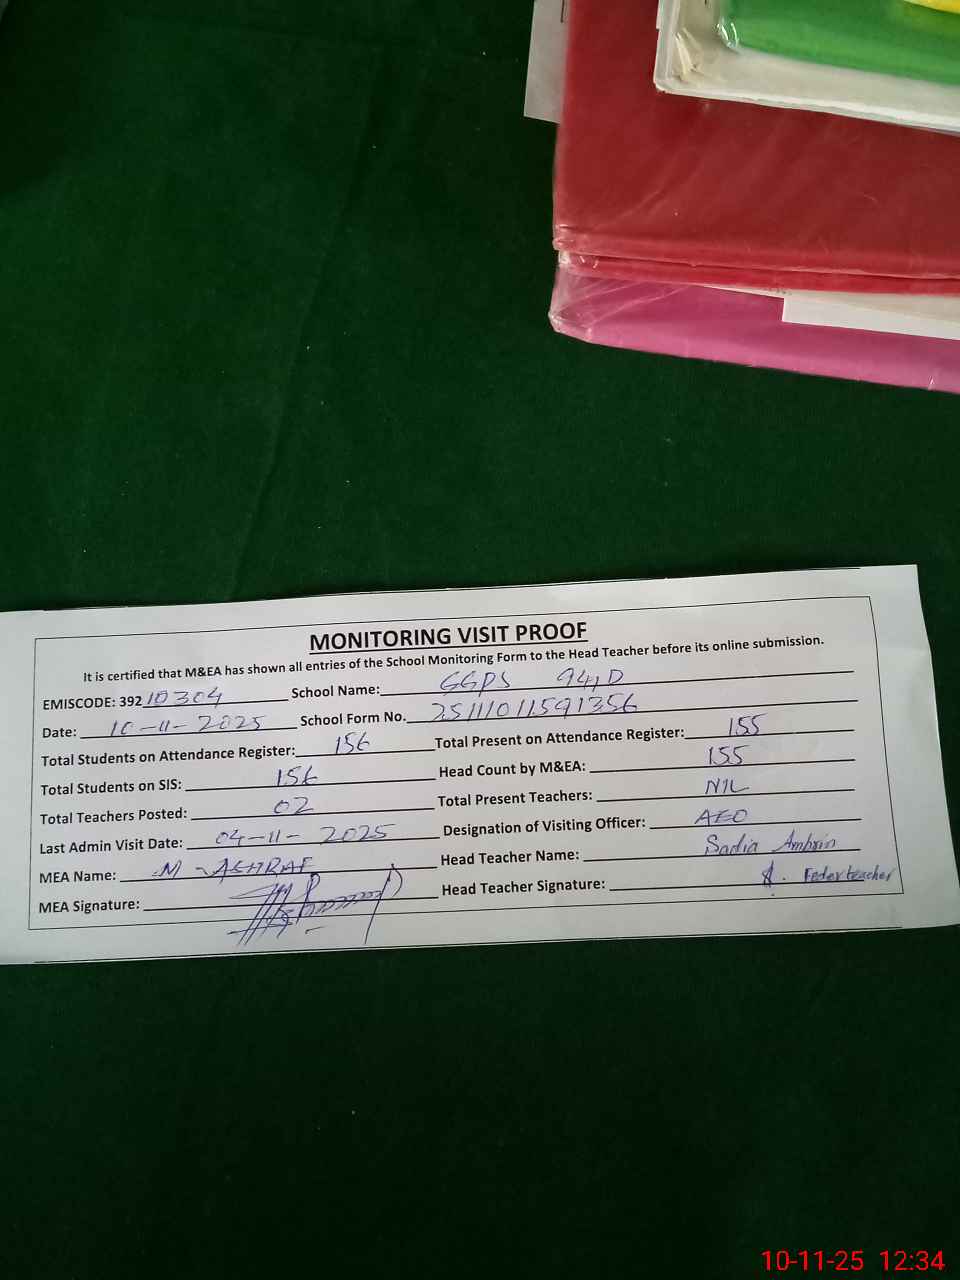 MONITORING VISIT PROOF
It is certified that M&EA has shown all entries of the School Monitoring Form to the Head Teacher before its online submission.
EMISCODE: 392 10304 School Name: GGPS 94,D
Date: 10-11-2025 School Form No. 25111011591356
Total Students on Attendance Register: 156 Total Present on Attendance Register: 155
Total Students on SIS: 156 Head Count by M&EA: 155
Total Teachers Posted: 02 Total Present Teachers: NIL
Last Admin Visit Date: 04-11-2025 Designation of Visiting Officer: AEO
MEA Name: M-ASHRAF Head Teacher Name: Sadia Ambrin
MEA Signature: Head Teacher Signature:
10-11-25 12:34